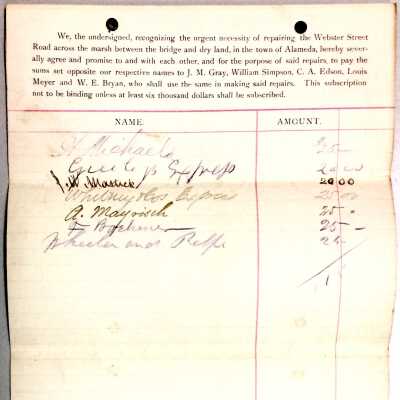 We, the undersigned, recognizing the urgent necessity of repairing the Webster Street
Road across the marsh between the bridge and dry land, in the town of Alameda, hereby sever-
ally agree and promise to and with each other, and for the purpose of said repairs, to pay
the sums set opposite our respective names to J. M. Gray, William Simpson, C. A. Edson, Louis
Meyer and W. E. Bryan, who shall use the same in making said repairs. This subscription
not to be binding unless at least six thousand dollars shall be subscribed.
NAME. AMOUNT.
Michaels 25 -
Express
J. W. 20 00
25 00
A. 25 -
25 -
Wheeler and 25